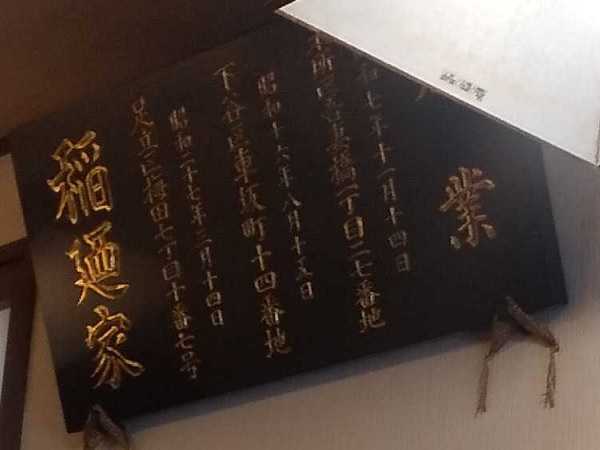 業
和七年十一月十四日
所区吾妻橋一丁目二七番地
昭和十六年八月十五日
下谷区車坂町十四番地
昭和二十七年三月十四日
足立区梅田七丁目十番七号
稲廼家